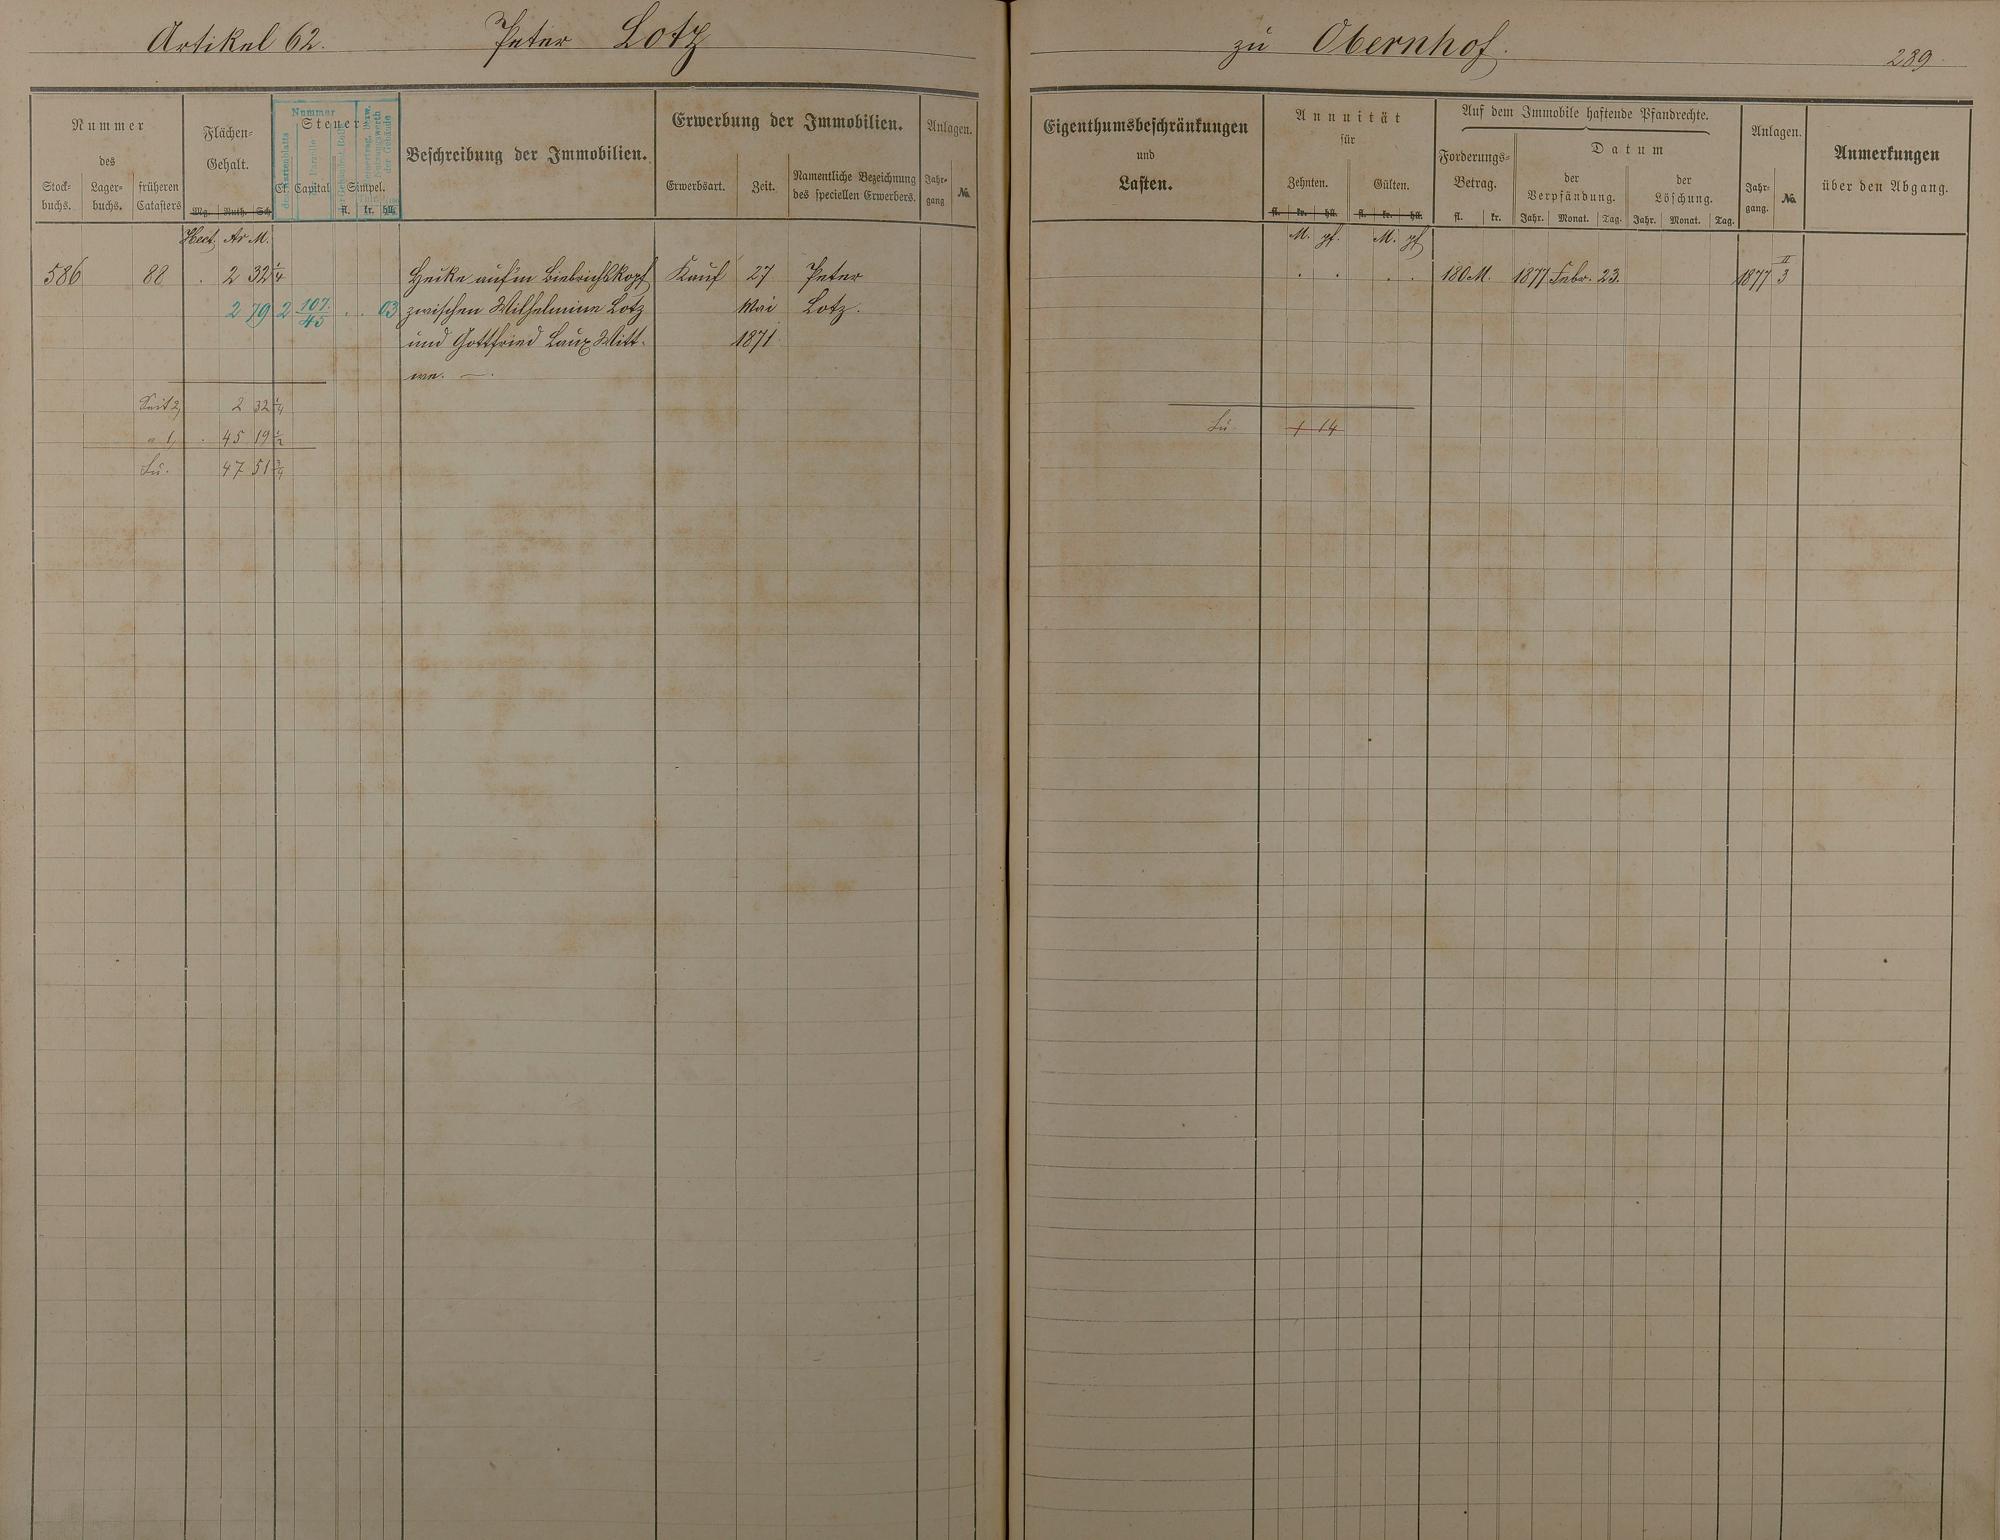 Artikel 62. Peter Lotz zu Obernhof. 289
Nummer
des
Stock-
buchs.
Lager-
buchs.
früheren
Catasters
Flächen-
Gehalt.
Mg. Ruth. Sch.
Nummer
des Kartenblatts
Parzelle
der Gebäude
Steuer-
Cl. Capital Simpel.
fl. kr. hll.
Beschreibung der Immobilien.
Erwerbung der Immobilien.
Erwerbsart. Zeit.
Namentliche Bezeichnung
des speciellen Erwerbers.
Anlagen.
Jahr-
gang
No.
Eigenthumsbeschränkungen
und
Lasten.
Annuität
für
Zehnten. Gülten.
fl. kr. hll. fl. kr. hll.
Auf dem Immobile haftende Pfandrechte.
Forderungs-
Betrag.
fl. kr.
Datum
der
Verpfändung.
Jahr. Monat. Tag.
der
Löschung.
Jahr. Monat. Tag.
Anlagen.
Jahr-
gang.
No.
Anmerkungen
über den Abgang.
Hect. Ar M. M. pf. M. pf
586 88 . 2 32 1/4 Hecke auf'm Biebrichskopf Kauf 27 Peter . . . . 180 M. 1877 Febr. 23. 1877 II 3
2 79 2 107/45 . . 03 zwischen Wilhelmine Lotz Mai Lotz.
und Gottfried Laux Witt- 1871
we. —.
Seit 2, 2 32 1/4
" 1, . 45 19 1/2 Su. 1 14
Su. 47 51 3/4